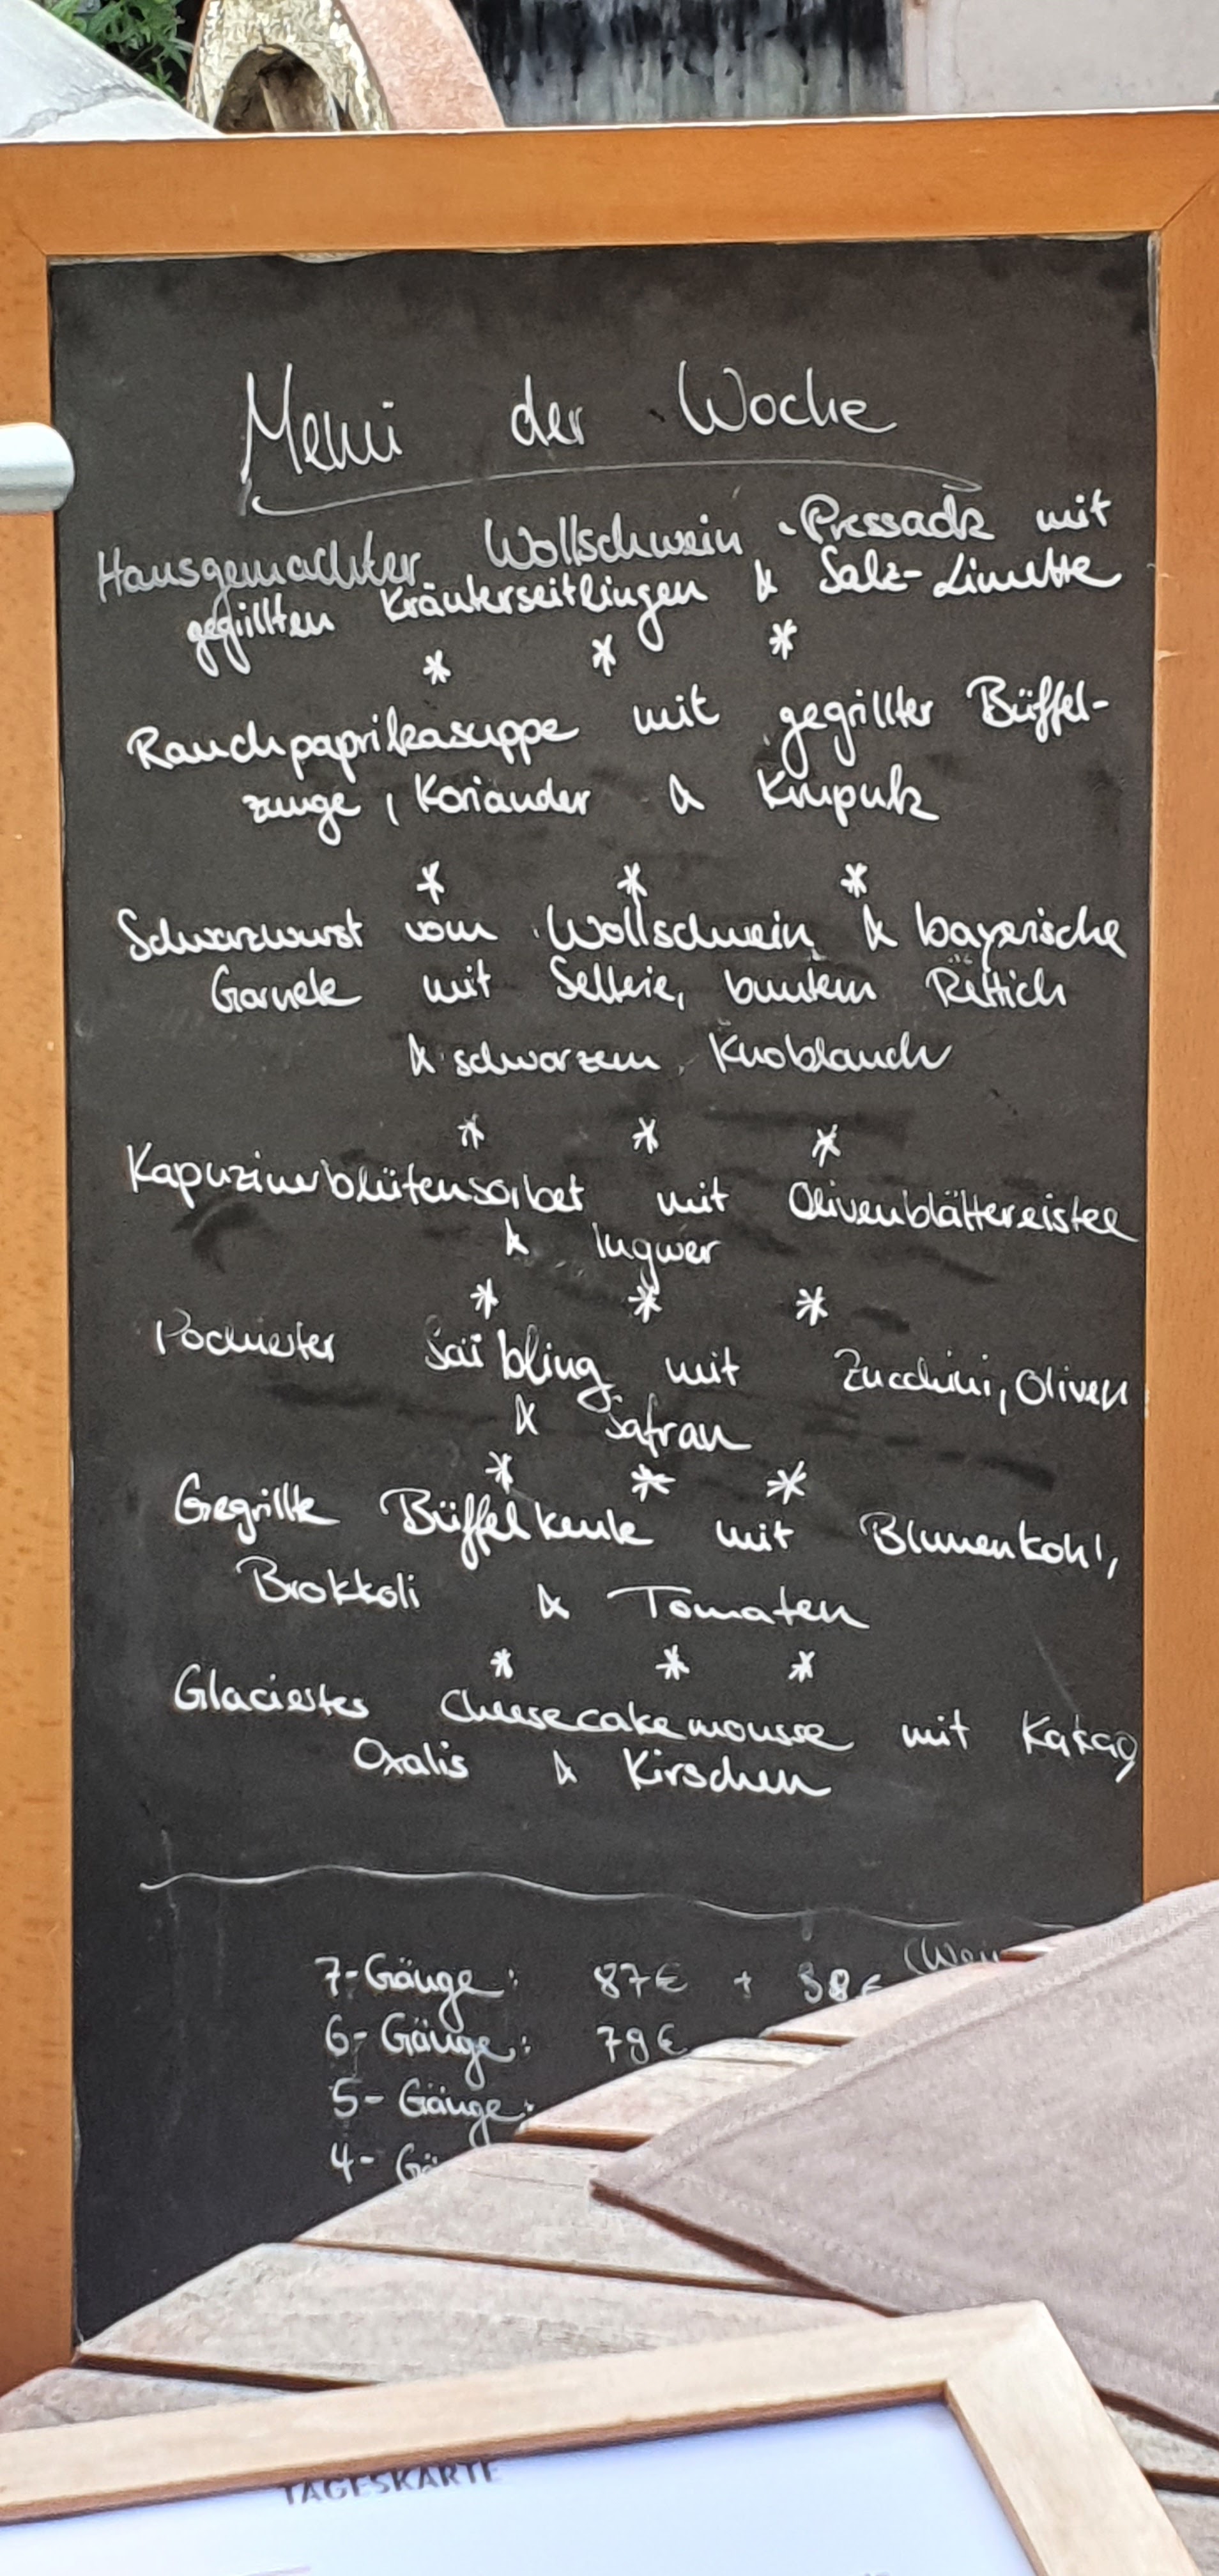 Menü der Woche
Hausgemachter Wollschwein-Pressack mit
gegrillten Kräuterseitlingen & Salz-Limette
* * *
Rauchpaprikasuppe mit gegrillter Büffel-
zunge, Koriander & Krupuk
* * *
Schwarzwurst vom Wollschwein & bayerische
Garnele mit Sellerie, buntem Rettich
& schwarzem Knoblauch
* * *
Kapuzinerblütensorbet mit Olivenblättereistee
& Ingwer
* * *
Pochierter Saibling mit Zucchini, Oliven
& Safran
* * *
Gegrillte Büffelkeule mit Blumenkohl,
Brokkoli & Tomaten
* * *
Glaciertes Cheesecakemousse mit Kakao,
Oxalis & Kirschen
7-Gänge: 87€ + 38€
6-Gänge: 79€
5-Gänge:
4-
TAGESKARTE